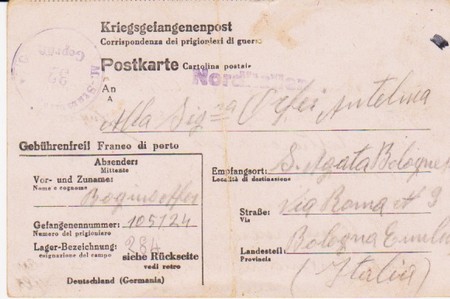 Kriegsgefangenenpost
Corrispondenza dei prigionieri di guerra
Postkarte Cartolina postale
Geprüft
32
An
A
Alla Sig.na Antelma
Gebührenfrei! Franco di porto
Absenders
Mittente
Vor- und Zuname:
Nome e cognome
Gefangenennummer: 105124
Numero del prigioniero
Lager-Bezeichnung: 28A
esignazione del campo
siehe Rückseite
vedi retro
Deutschland (Germania)
Empfangsort: S. Agata Bolognese
Località di destinazione
Straße: Via Roma N 9
Via
Bologna Emilia
Landesteil: (Italia)
Provincia